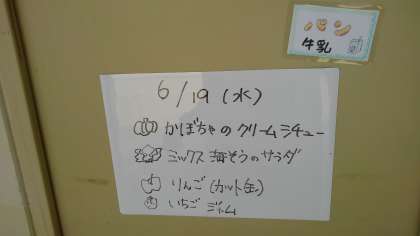 パン
牛乳
6/19(水)
かぼちゃのクリームシチュー
ミックス海そうのサラダ
りんご(カット缶)
いちごジャム